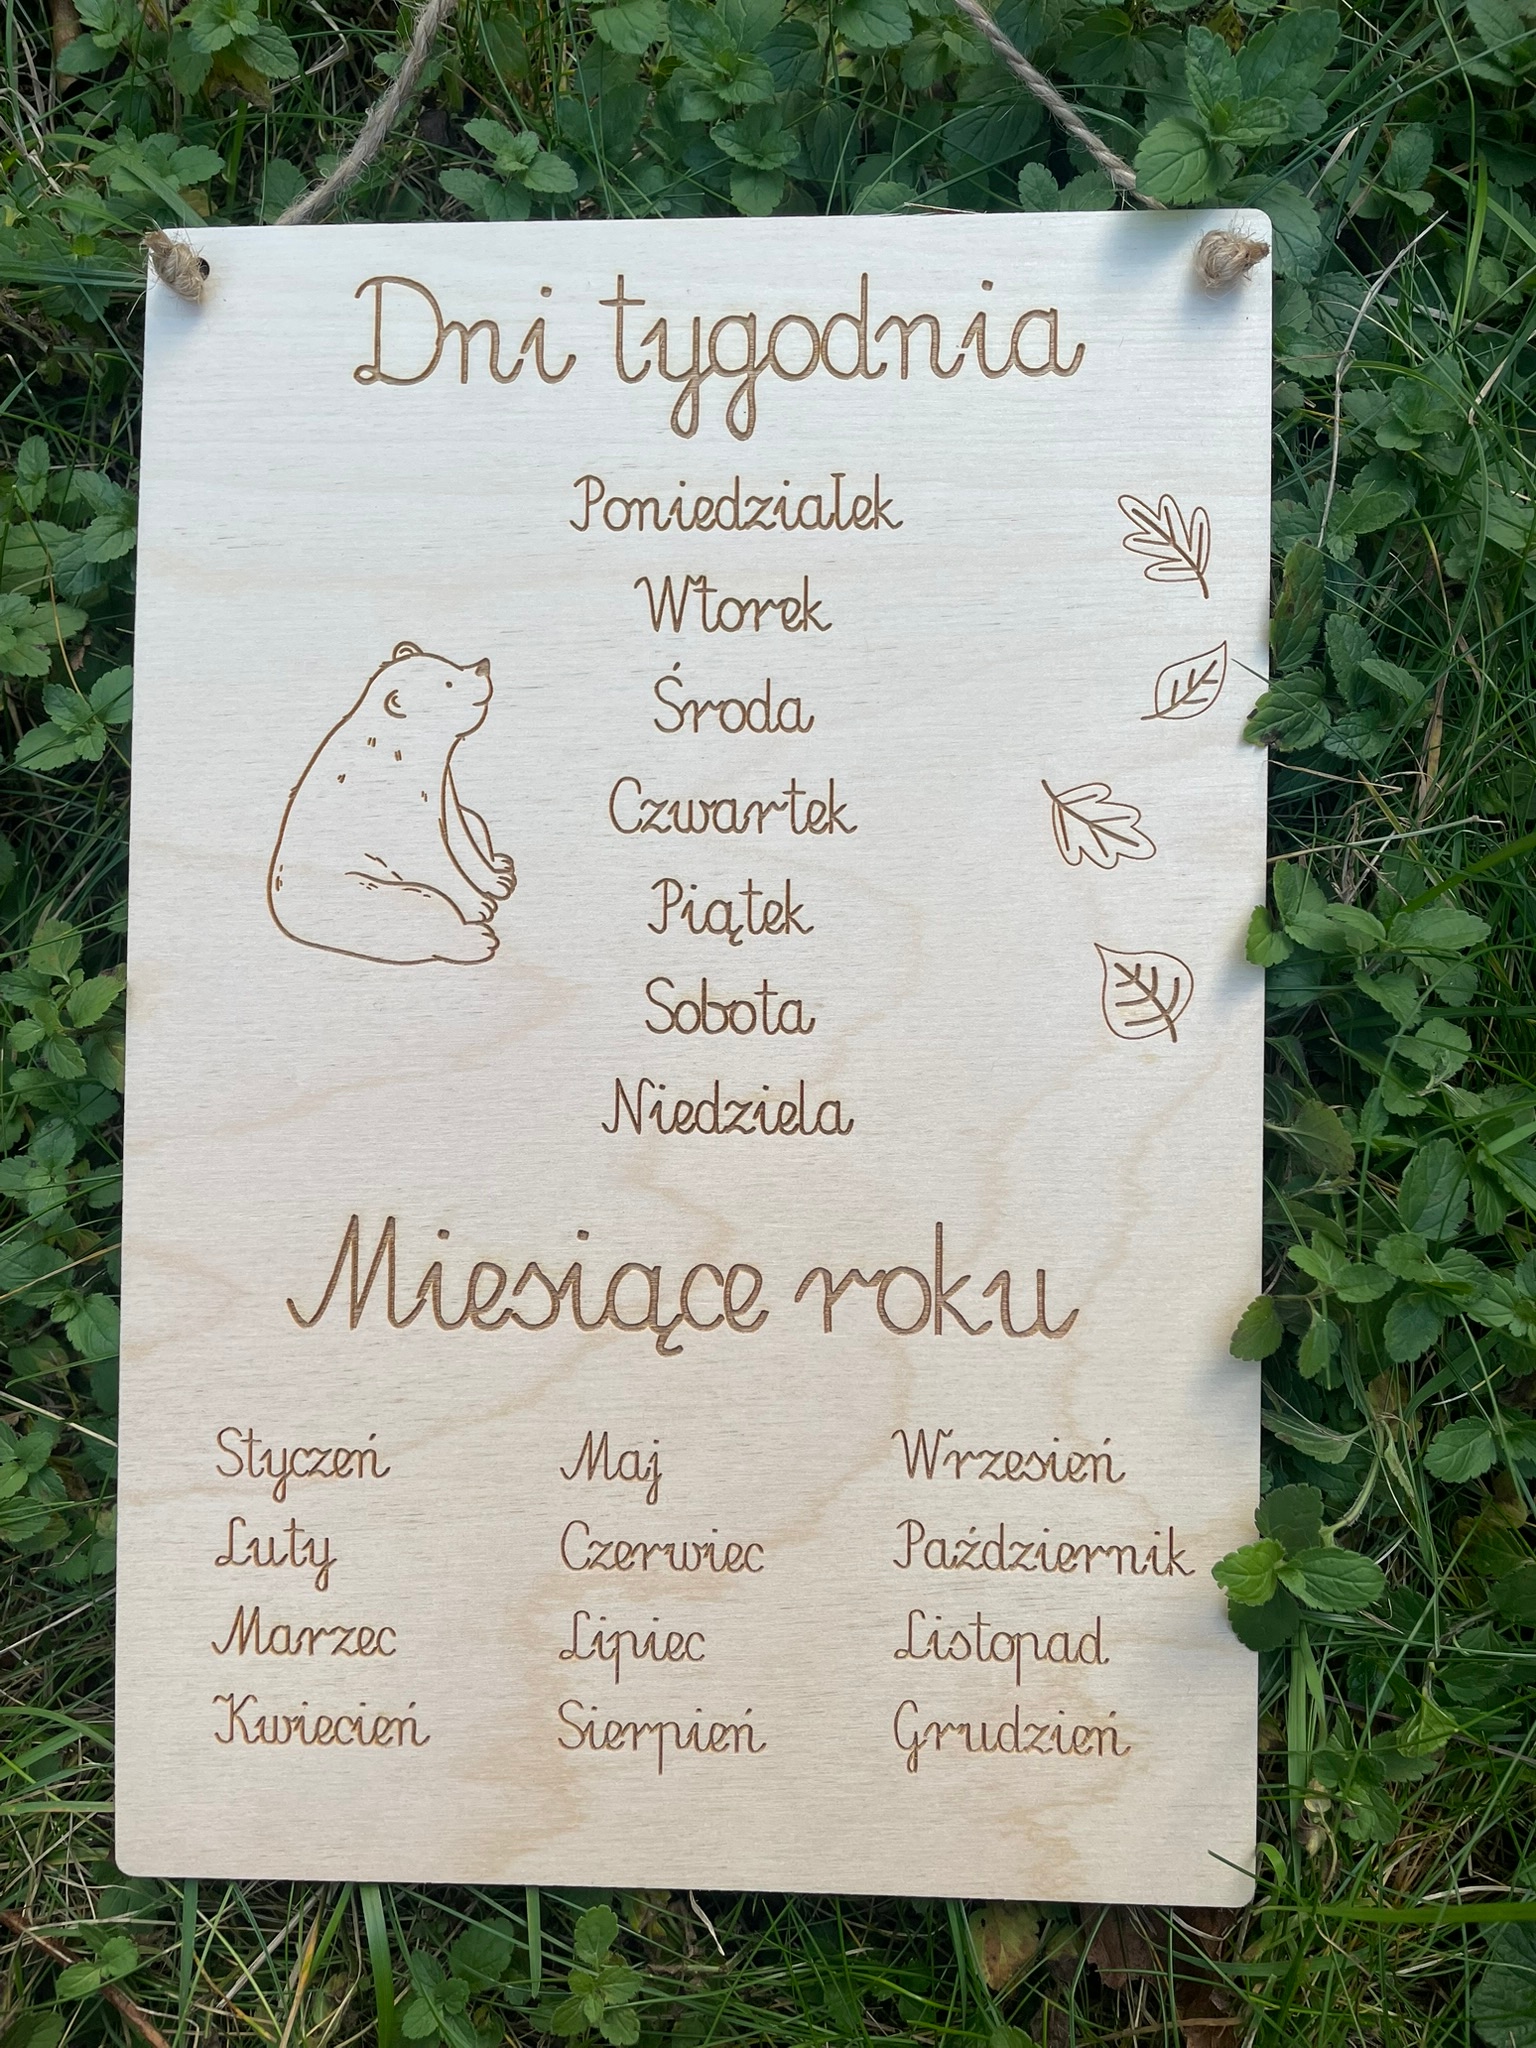 Dni tygodnia
Poniedziałek
Wtorek
Środa
Czwartek
Piątek
Sobota
Niedziela
Miesiące roku
Styczeń
Luty
Marzec
Kwiecień
Maj
Czerwiec
Lipiec
Sierpień
Wrzesień
Październik
Listopad
Grudzień